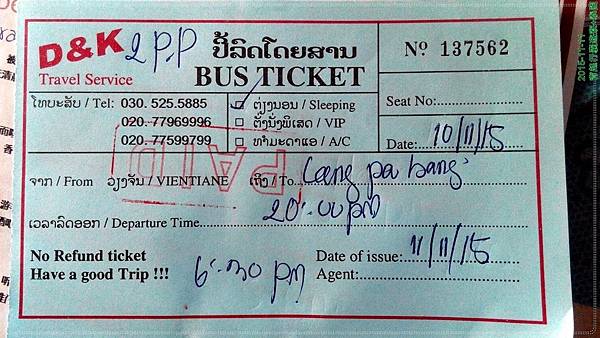 D&K 2 P.P ປີ້ລົດໂດຍສານ Nº 137562
Travel Service BUS TICKET
ໂທບະສັບ / Tel: 030. 525.5885 ☑ ຕຸ່ງນອນ / Sleeping Seat No:
020. 77969996 ☐ ຕັ່ງນັ່ງພິເສດ / VIP
020. 77599799 ☐ ທຳມະດາແອ / A/C Date: 10/11/15
PAID
ຈາກ / From ວຽງຈັນ / VIENTIANE ເຖິງ / To Lang pa bang
20:00 pm
ເວລາລົດອອກ / Departure Time
No Refund ticket Date of issue: 11/11/15
Have a good Trip !!! 6:30 pm Agent:
2015-11-11